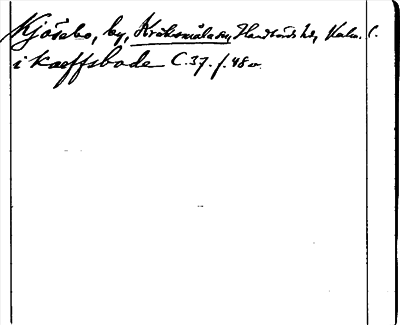 Kjösebo, by, Kråksmåla sn, Handbörds hd, Kalm. l.
i Kæffsbode C.37. f. 48 v.